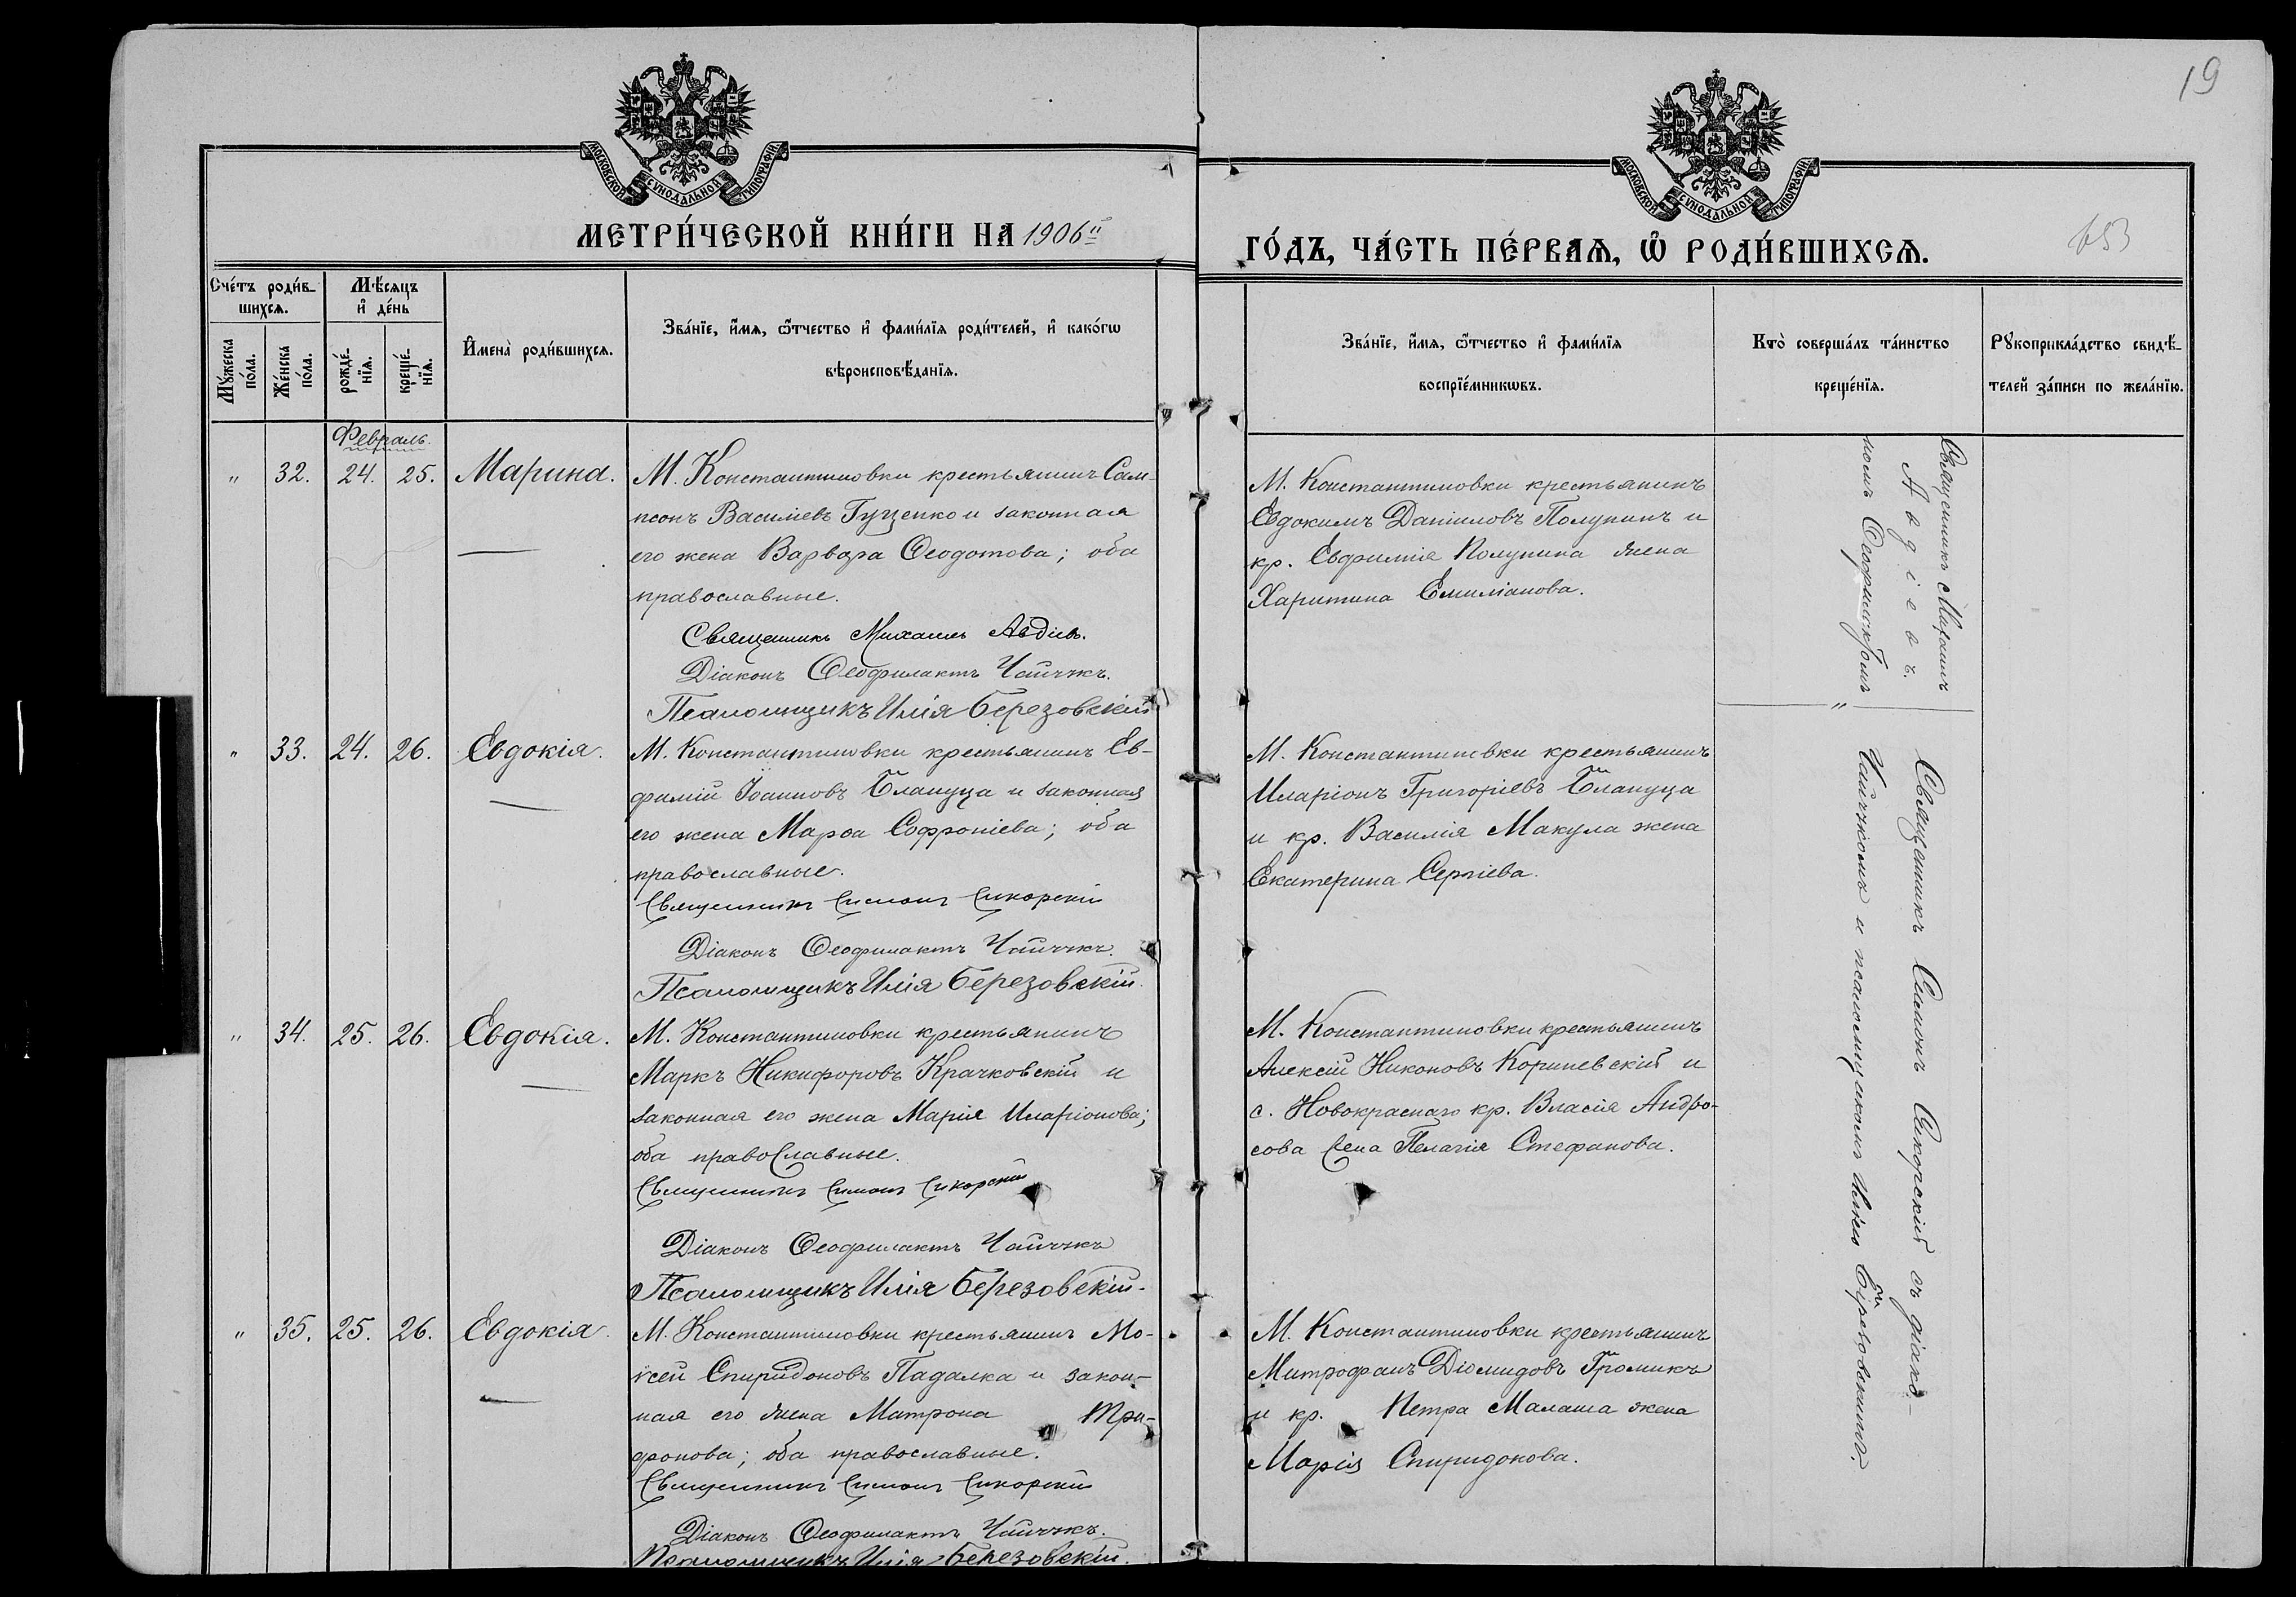 19
МОСКОВСКОЙ СѴНОДАЛЬНОЙ ТИПОГРАФІИ
МОСКОВСКОЙ СѴНОДАЛЬНОЙ ТИПОГРАФІИ
МЕТРИ́ЧЕСКОЙ КНИ́ГИ НА 1906й
ГО́ДЪ, ЧА́СТЬ ПЕ́РВАѦ, Ѽ РОДИ́ВШИХСѦ.
653
Сче́тъ роди́в-
шихсѧ.
Мꙋ́жеска
по́ла.
Же́нска
по́ла.
Мѣ́сѧцъ
и҆ де́нь
рожде́-
нїѧ.
креще́-
нїѧ.
И҆мена̀ роди́вшихсѧ.
Зва́нїе, и҆́мѧ, ѻ҆́тчество и҆ фами́лїѧ роди́телей, и҆ како́гѡ
вѣроисповѣ́данїѧ.
Зва́нїе, и҆́мѧ, ѻ҆́тчество и҆ фами́лїѧ
воспрїе́мникѡвъ.
Кто̀ соверша́лъ та́инство
креще́нїѧ.
Рꙋкоприкла́дство свидѣ́-
телей за́писи по жела́нїю.
Февраль.
" 32. 24. 25. Марина.
М. Константиновки крестьянинъ Сам-
псонъ Василіевъ Гуценко и законная
его жена Варвара Ѳеодотова; оба
православные.
Священникъ Михаилъ Авдіевъ.
Діаконъ Ѳеофилактъ Чайчукъ.
Псаломщикъ Илія Березовскій
М. Константиновки крестьянинъ
Евдокимъ Даніиловъ Полупинъ и
кр. Евфимія Полупина жена
Харитина Емиліанова.
Священникъ Михаилъ
Авдіевъ.
"
" 33. 24. 26. Евдокія.
М. Константиновки крестьянинъ Ев-
фимій Іоанновъ Блануца и законная
его жена Марѳа Софроніева; оба
православные.
Священникъ Симонъ Сикорскій
Діаконъ Ѳеофилактъ Чайчукъ.
Псаломщикъ Илія Березовскій.
М. Константиновки крестьянинъ
Иларіонъ Григоріевъ Блануца
и кр. Василія Макула жена
Екатерина Сергіева.
Священникъ Симонъ Сикорскій съ діако-
Чайчукомъ и псаломщикомъ Иліею Березовскимъ.
" 34. 25. 26. Евдокія.
М. Константиновки крестьянинъ
Маркъ Никифоровъ Крачковскій и
законная его жена Марія Иларіонова;
оба православные.
Священникъ Симонъ Сикорскій
Діаконъ Ѳеофилактъ Чайчукъ
Псаломщикъ Илія Березовскій.
М. Константиновки крестьянинъ
Алексій Никоновъ Кориневскій и
с. Новокраснаго кр. Власія Андро-
сова жена Пелагія Стефанова.
" 35. 25. 26. Евдокія.
М. Константиновки крестьянинъ Мо-
ѵсей Спиридоновъ Падалка и закон-
ная его жена Матрона Три-
фонова; оба православные.
Священникъ Симонъ Сикорскій
Діаконъ Ѳеофилактъ Чайчукъ.
Псаломщикъ Илія Березовскій.
М. Константиновки крестьянинъ
Митрофанъ Діомидовъ Громикъ
и кр. Петра Малаша жена
Марія Спиридонова.